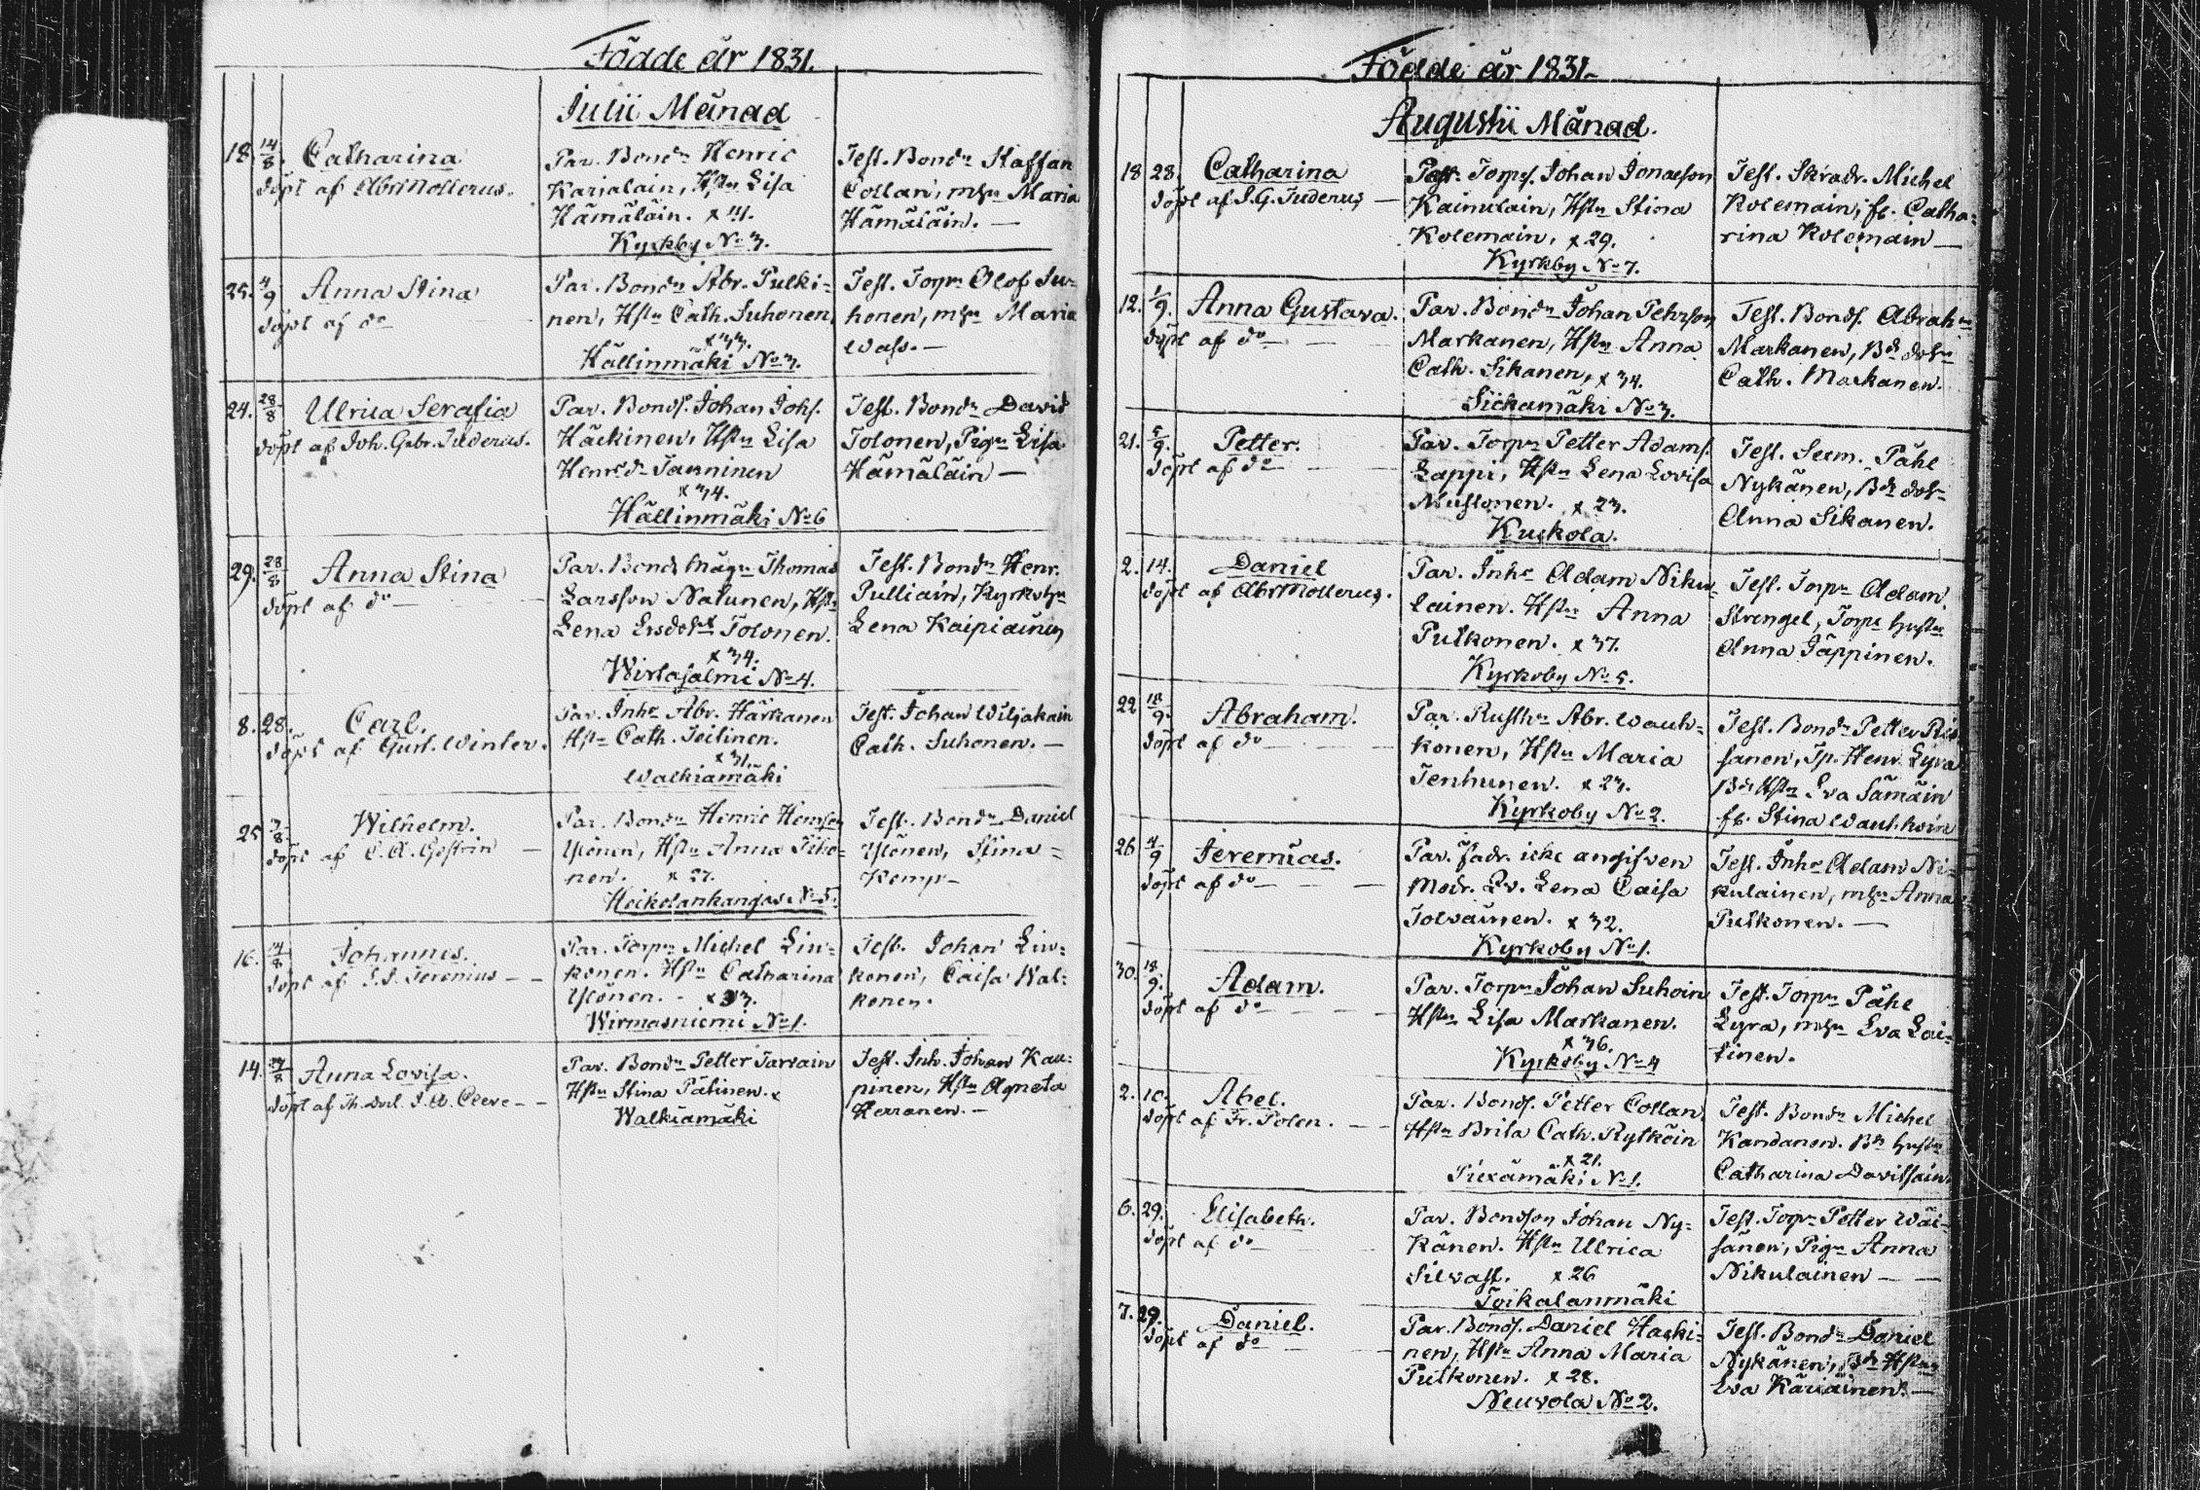 Födde år 1831.
Julii Månad
18 14/8. Catharina
döpt af Abr Mollerus.
Par. Bondn Henric
Karialain, Hstn Lisa
Hämäläin. x 41.
Kyrkby No 3.
Test. Bondn Staffan
Collan, mhu Maria
Hämäläin. —
25. 4/9 Anna Stina
döpt af do
Par. Bondn Abr. Pulki=
nen, Hstn Cath. Suhonen,
x 33.
Hällinmäki No 3.
Test. Torpn Olof Su=
honen, mhu Maria
Wass. —
24. 28/8 Ulrica Serafia
döpt af Joh. Gabr. Juderus.
Par. Bonds. Johan Johs.
Häckinen, Hstn Lisa
Henrsdr Tarninen
x 34.
Hällinmäki No 6
Test. Bondn David
Tolonen, Pign Lisa
Hämäläin —
29. 28/8 Anna Stina
döpt af do —
Par. Bonds mågn Thomas
Larsson Natunen, Hstn
Lena Ersdotr Tolonen.
x 34.
Wirtasalmi No 4.
Test. Bondn Henr.
Pulliain, Kyrkohn
Lena Kaipiainen
8. 28. Carl.
döpt af Gust. Winter.
Par. Inhs Abr. Härkanen
Hstn Cath. Teitinen.
x 31.
Walkiamäki
Test. Johan Wiljakain
Cath. Suhonen. —
25 7/8 Wilhelm.
döpt af C. A. Gostrin —
Par. Bondn Henric Henrsson
Ylönen, Hstn Anna Tiko=
nen. x 27.
Heikolankangas No 5.
Test. Bondn Daniel
Ylönen, Stina =
Kemp —
16. 14/8 Johannes.
döpt af J. J. Forenius — —
Par. Torpn Michel Lin=
konen. Hstn Catharina
Ylönen. - x 33.
Wirmasniemi No 1.
Test. Johan Lin=
konen, Caisa Wal=
konen.
14. 27/8 Anna Lovisa.
döpt af J. A. Cleve — —
Par. Bondn Petter Tarvain
Hstn Stina Pätinen. x
Walkiamäki
Test. Inh. Johan Kau=
pinen, Hstn Agneta
Kerranen. —
Födde år 1831.
Augustii Månad.
18 28. Catharina
döpt af J. G. Juderus —
Par. Torps. Johan Jonasson
Kainulain, Hstn Stina
Kolemain, x 29.
Kyrkby No 7.
Test. Skradr. Michel
Kolemain, fl. Catha=
rina Kolemain —
12. 1/9. Anna Gustava.
döpt af do — — —
Par. Bondn Johan Pehrson
Markanen, Hstn Anna
Cath. Sikanen, x 34.
Sickamäki No 3.
Test. Bonds. Abrahm
Markanen, Bd dotn
Cath. Markanen.
21. 5/9. Petter.
döpt af do —
Par. Torpn Petter Adams.
Lappi, Hstn Lena Lovisa
Mustonen. x 23.
Kuckola.
Test. Sexm. Påhl
Nykänen, Bd dotr
Anna Sikanen.
2. 14. Daniel
döpt af Abr Mollerus.
Par. Inhs Adam Niku=
lainen. Hstn Anna
Pulkonen. x 37.
Kyrkoby No 5.
Test. Torpn Adam
Strengel, Torps hustn
Anna Jäppinen.
22 18/9. Abraham.
döpt af do —
Par. Rusthn Abr. Wauh=
konen, Hstn Maria
Tenhunen. x 23.
Kyrkoby No 2.
Test. Bondn Petter Räi
sänen, Tp. Henr. Lyra
Bd Hstn Eva Samäin
fl. Stina Wauhkoin
26 4/9 Jeremias.
döpt af do — — —
Par. fadr. icke angifven
Modr. Qv. Lena Caisa
Tolvainen. x 32.
Kyrkoby No 1.
Test. Inhs Adam Ni=
kulainen, mhu Anna
Pulkonen. —
30. 18/9. Adam.
döpt af do — — —
Par. Torpn Johan Suhoin
Hstn Lisa Markanen.
x 36.
Kyrkoby No 4
Test. Torpn Påhl
Lyra, mhu Eva Lai=
tinen.
2. 10. Abel.
döpt af Fr. Polen. — —
Par. Bonds. Petter Collan
Hstn Brita Cath. Rytköin
x 21.
Pixämäki No 1.
Test. Bondn Michel
Kandanen. Bd hustn
Catharina Davitsain
6. 29. Elisabeth.
döpt af do — — —
Par. Bondson Johan Ny=
känen. Hstn Ulrica
Silvast. x 26
Toikalanmäki
Test. Torpn Petter Wäi=
sänen, Pign Anna
Nikulainen — —
7. 29. Daniel.
döpt af do — — —
Par. Bonds. Daniel Hacki=
nen, Hstn Anna Maria
Pulkonen. x 28.
Neuvola No 2.
Test. Bondn Daniel
Nykänen, Bd Hstn
Eva Käriäinen. —